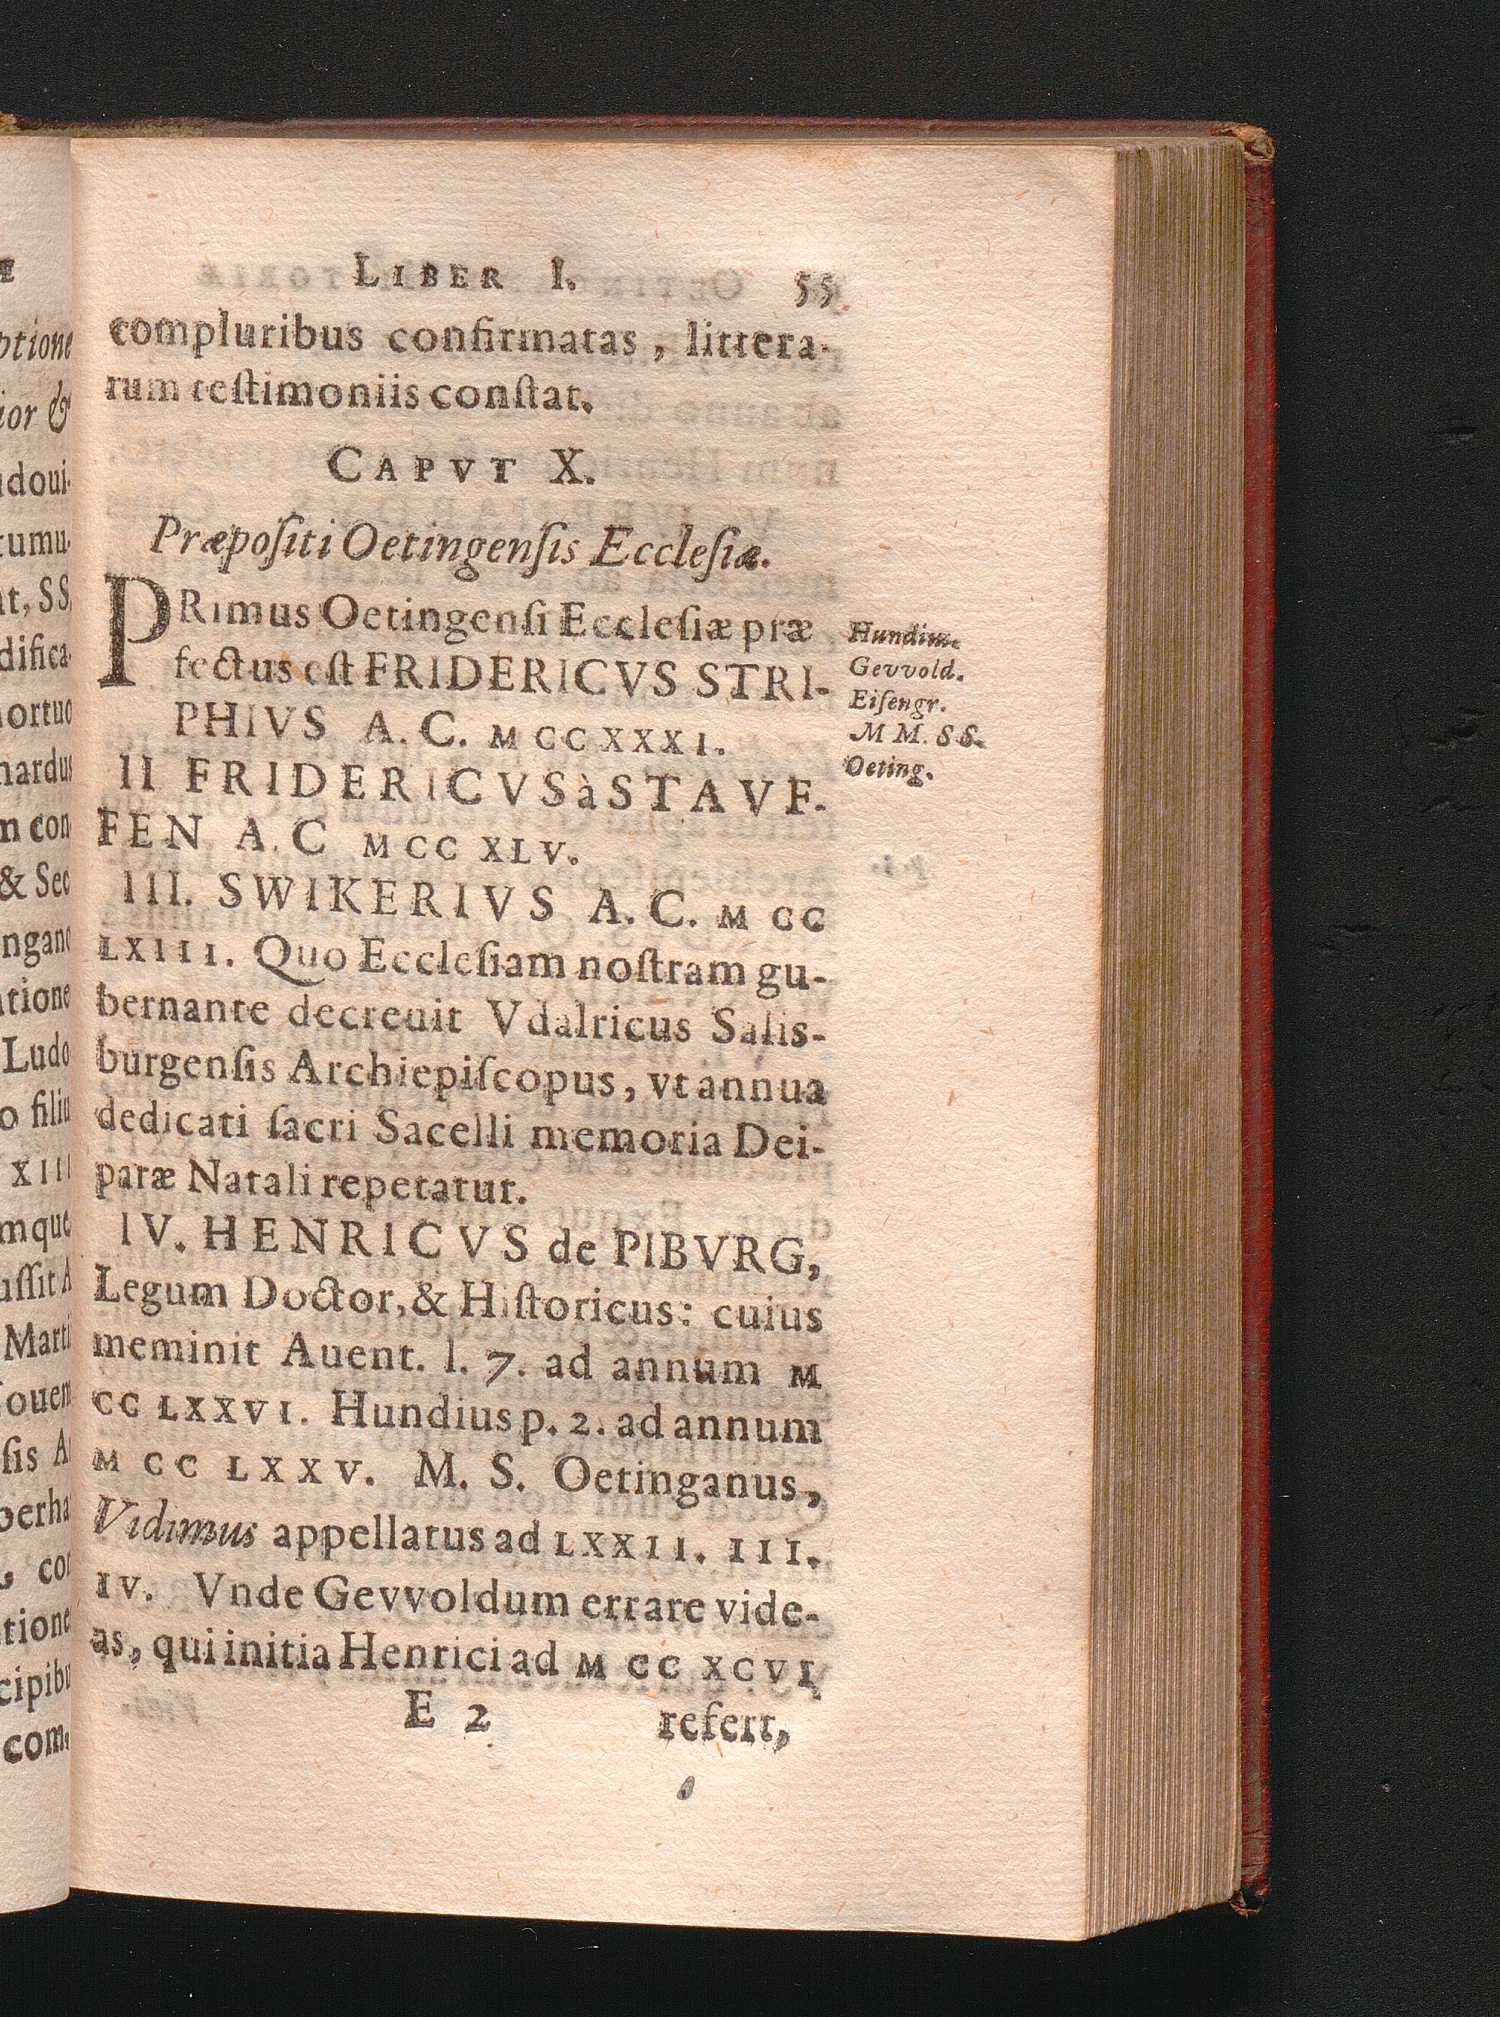 LIBER I. 55
compluribus confirmatas, littera-
rum teſtimoniis conſtat.
CAPVT X.
Præpoſiti Oetingenſis Eccleſiæ.
PRimus Oetingenſi Eccleſiæ præ
fectus eſt FRIDERICVS STRI-
PHIVS A. C. MCCXXXI.
II FRIDERICVS à STAVF-
FEN A. C MCC XLV.
III. SWIKERIVS A. C. M CC
LXIII. Quo Eccleſiam noſtram gu-
bernante decreuit Vdalricus Salis-
burgenſis Archiepiſcopus, vt annua
dedicati ſacri Sacelli memoria Dei-
paræ Natali repetatur.
IV. HENRICVS de PIBVRG,
Legum Doctor, & Hiſtoricus: cuius
meminit Auent. l. 7. ad annum M
CC LXXVI. Hundius p. 2. ad annum
M CC LXXV. M. S. Oetinganus,
Vidimus appellatus ad LXXII. III.
IV. Vnde Gevvoldum errare vide-
as, qui initia Henrici ad M CC XCVI
E 2 refert,
Hundius.
Gevvold.
Eiſengr.
M M. S S.
Oeting.
ptione
ior &
udoui-
tumu-
nt, SS.
difica-
nortuo
nardus
m con
& Sec
ngano
tione
Ludo
o filiu
XIII
mque
uſſit A
Marti
ouem
ſis A
berha
con
tione
cipibu
com-